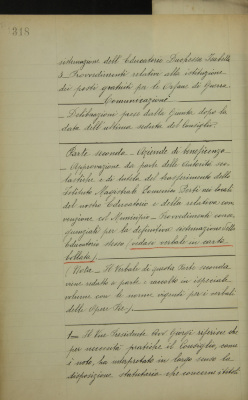 318
sistemazione dell'Educatorio Duchessa Isabella
3 Provvedimenti relativi alla istituzione
dei posti gratuiti per le Orfane di Guerra
Comunicazioni
Deliberazioni prese dalla Giunta dopo la
data dell'ultima seduta del Consiglio.
Parte seconda - Azienda di beneficenza
Approvazione da parte delle Autorità sco-
lastiche e di tutela del trasferimento dello
Istituto Magistrale Comunale nei locali
del nostro Educatorio e della relativa con-
venzione col Municipio - Provvedimenti conse-
guenziali per la definitiva sistemazione dello
Educatorio stesso (vedasi verbali in carta
bollata)
(Nota - Il Verbale di questa Parte seconda
viene redatto a parte e raccolto in speciale
volume con le norme vigenti per i verbali
delle Opere Pie)
Il Vice Presidente Avv. Giorgi riferisce che
per necessità pratiche il Consiglio, come
è noto, ha interpretato in largo senso la
disposizione statutaria che concerne